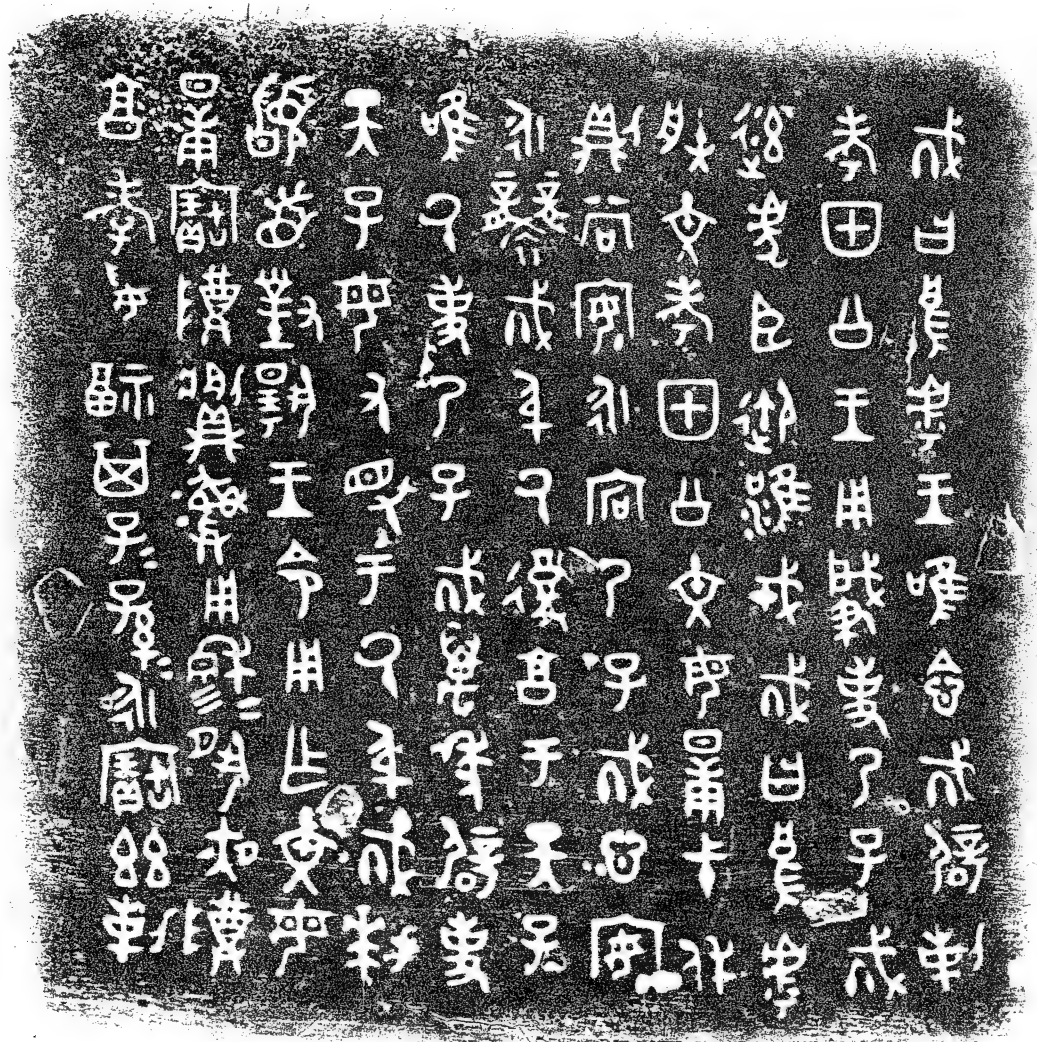 𢦚曰烏虖王唯念𢦚辟剌
考甲公王用肇事乃子𢦚
率虎臣御淮戎𢦚曰烏虖
朕文考甲公文母日庚弋休
則尚安永宕乃子𢦚心安
永襲𢦚身厥復享于天子
唯厥事乃子𢦚萬年辟事
天子毋又尤于厥身𢦚拜
稽首對揚王令用乍文母
日庚寶尊𩰬彝用穆穆夙夜尊
享孝妥福其子子孫孫永寶茲剌